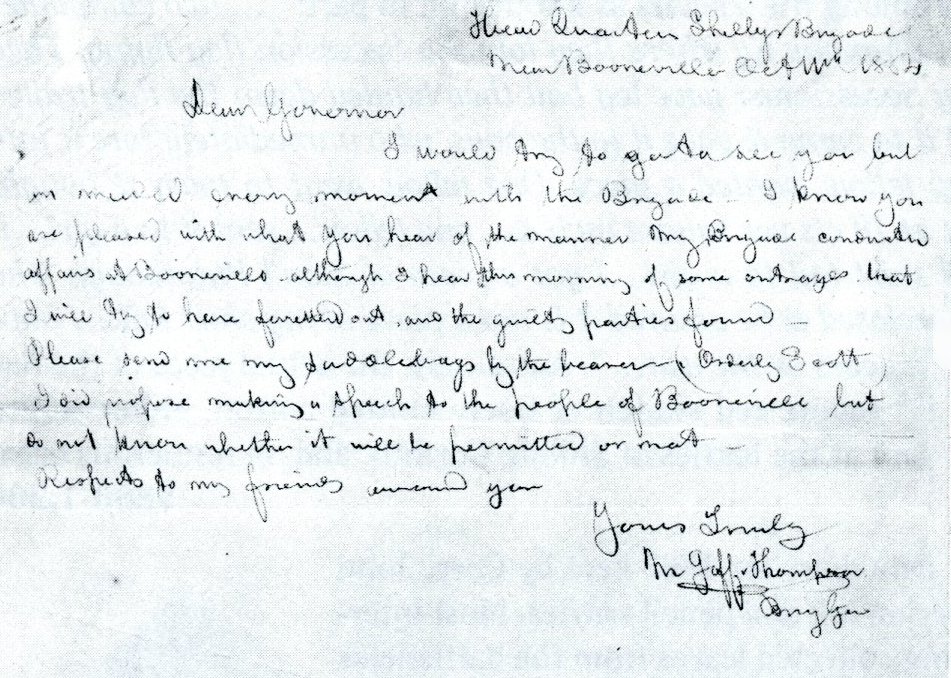 Head Quarters Shelbys Brigade
Near Booneville Oct 11th 1864
Dear Governor
I would try to go to see you but
am needed every moment with the Brigade - I know you
are pleased with what you hear of the manner my Brigade conducted
affairs at Booneville although I hear this morning of some outrages that
I will try to have faretted out, and the guilty parties found -
Please send me my saddlebags by the bearer (Orderly Scott)
I did propose making a speech to the people of Booneville but
do not know whether it will be permitted or not
Respects to my friends around you
Yours Truly
M Jeff Thompson
Brig Gen